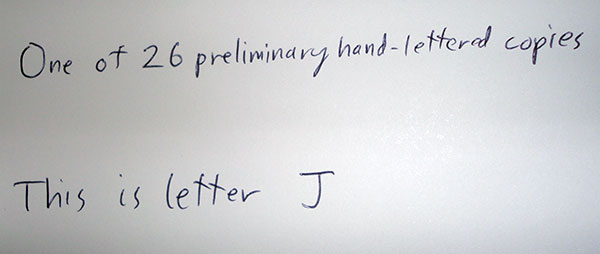 One of 26 preliminary hand-lettered copies
This is letter J